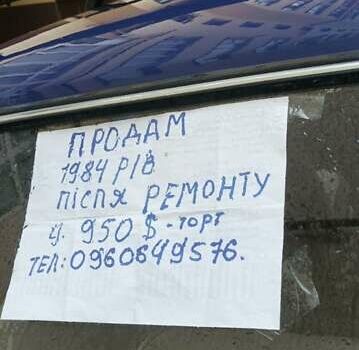 ПРОДАМ
1984 РІВ
ПІСЛЯ РЕМОНТУ
Ц. 950 $ - ТОРГ
ТЕЛ: 0960649576.